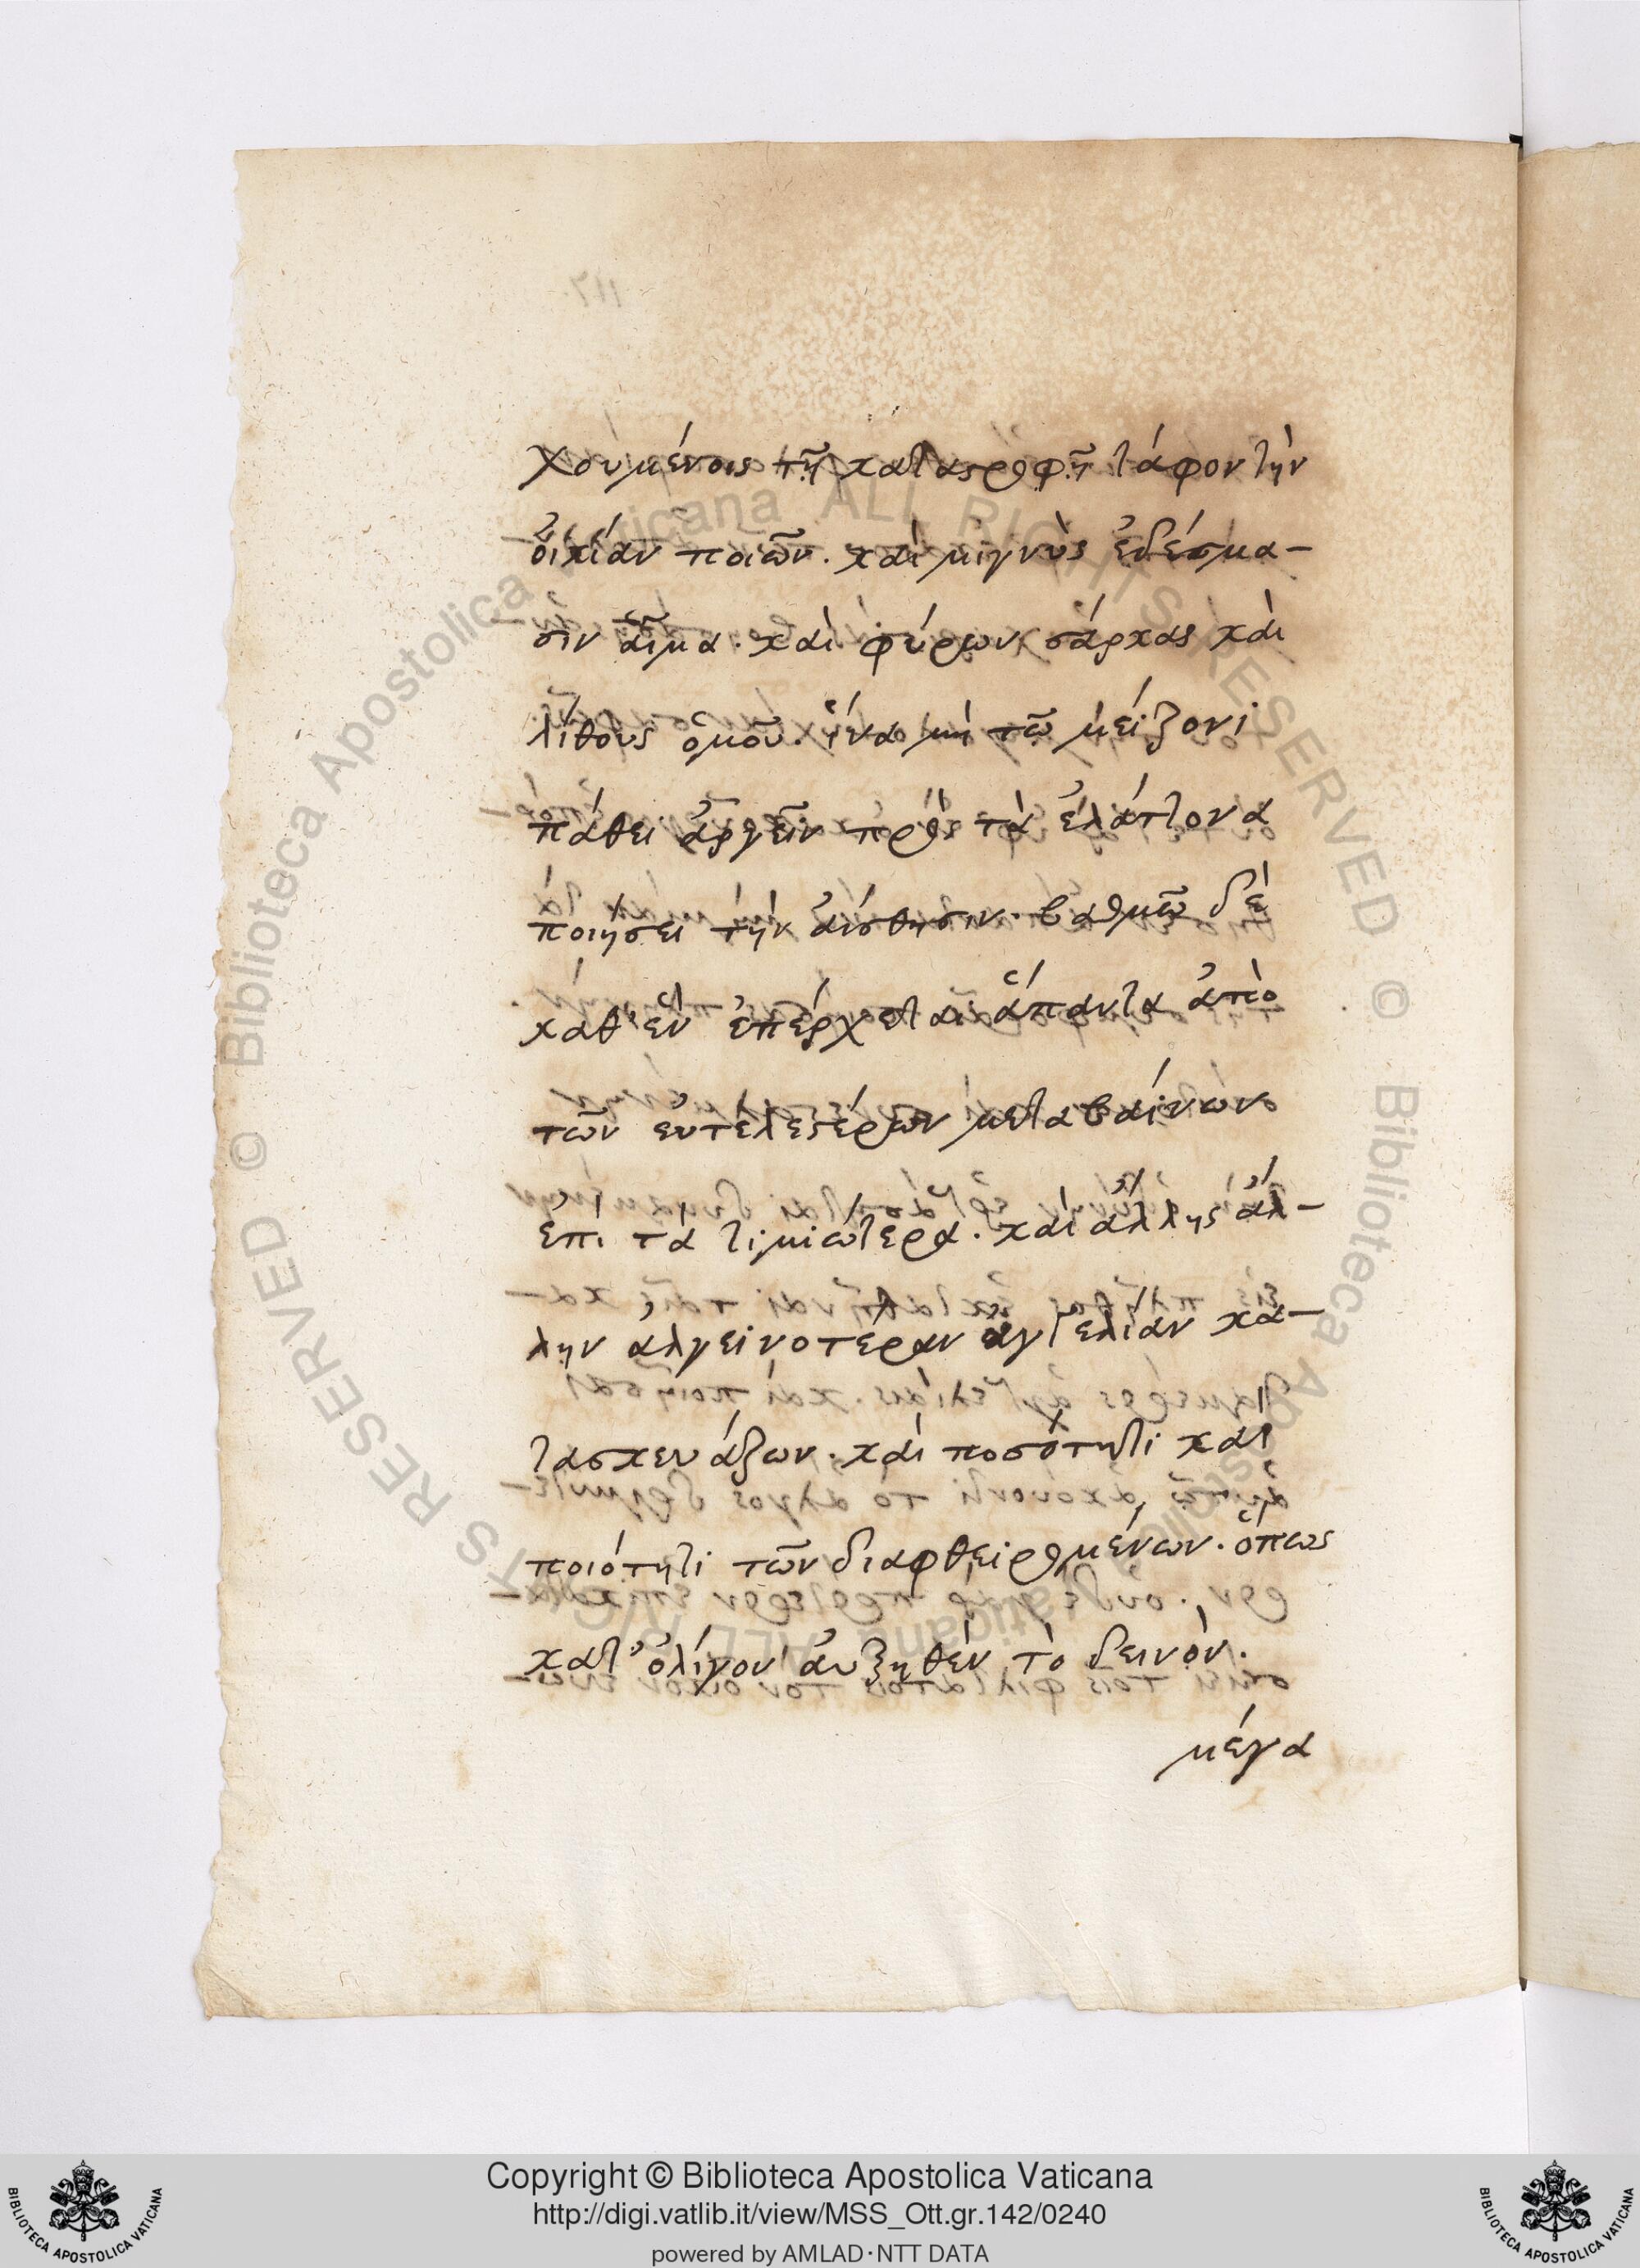 χουμένοις τῆ καταστροφῆ τάφον τὴν
οἰκίαν ποιῶν. καὶ μιγνὺς ἐδέσμα-
σιν αἷμα. καὶ φύρων σάρκας καὶ
λίθους ὁμοῦ. ἵνα μὴ τῶ μείζονι
πάθει ἀργεῖν πρὸς τὰ ἐλάττονα
ποιήσει τὴν αἴσθησιν. βαθμῶ δὲ
καθ' ἓν ἐπέρχεται ἅπαντα ἀπὸ
τῶν εὐτελεστέρων μεταβαίνων
ἐπὶ τὰ τιμιώτερα. καὶ ἄλλης ἄλ-
λην ἀλγεινοτέραν ἀγγελίαν κα-
τασκευάζων. καὶ ποσότητι καὶ
ποιότητι τῶν διαφθειρομένων. ὅπως
κατ' ὀλίγον αὐξηθὲν τὸ δεινὸν.
μέγα
Copyright © Biblioteca Apostolica Vaticana
http://digi.vatlib.it/view/MSS_Ott.gr.142/0240
powered by AMLAD·NTT DATA
BIBLIOTECA APOSTOLICA VATICANA
BIBLIOTECA APOSTOLICA VATICANA